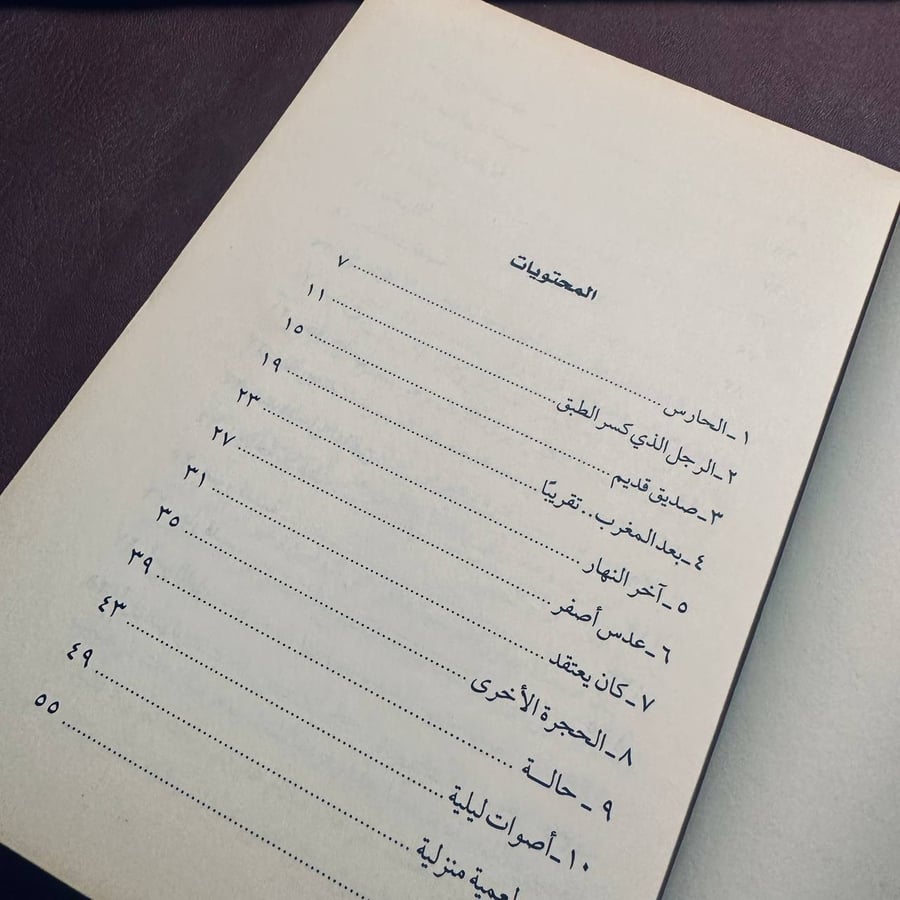 المحتويات
١ ـ الحارس ........ ٧
٢ ـ الرجل الذي كسر الطبق ........ ١١
٣ ـ صديق قديم ........ ١٥
٤ ـ بعد المغرب .. تقريبًا ........ ١٩
٥ ـ آخر النهار ........ ٢٣
٦ ـ عدس أصفر ........ ٢٧
٧ ـ كان يعتقد ........ ٣١
٨ ـ الحجرة الأخرى ........ ٣٥
٩ ـ حالة ........ ٣٩
١٠ ـ أصوات ليلية ........ ٤٣
منزلية ........ ٤٩
........ ٥٥